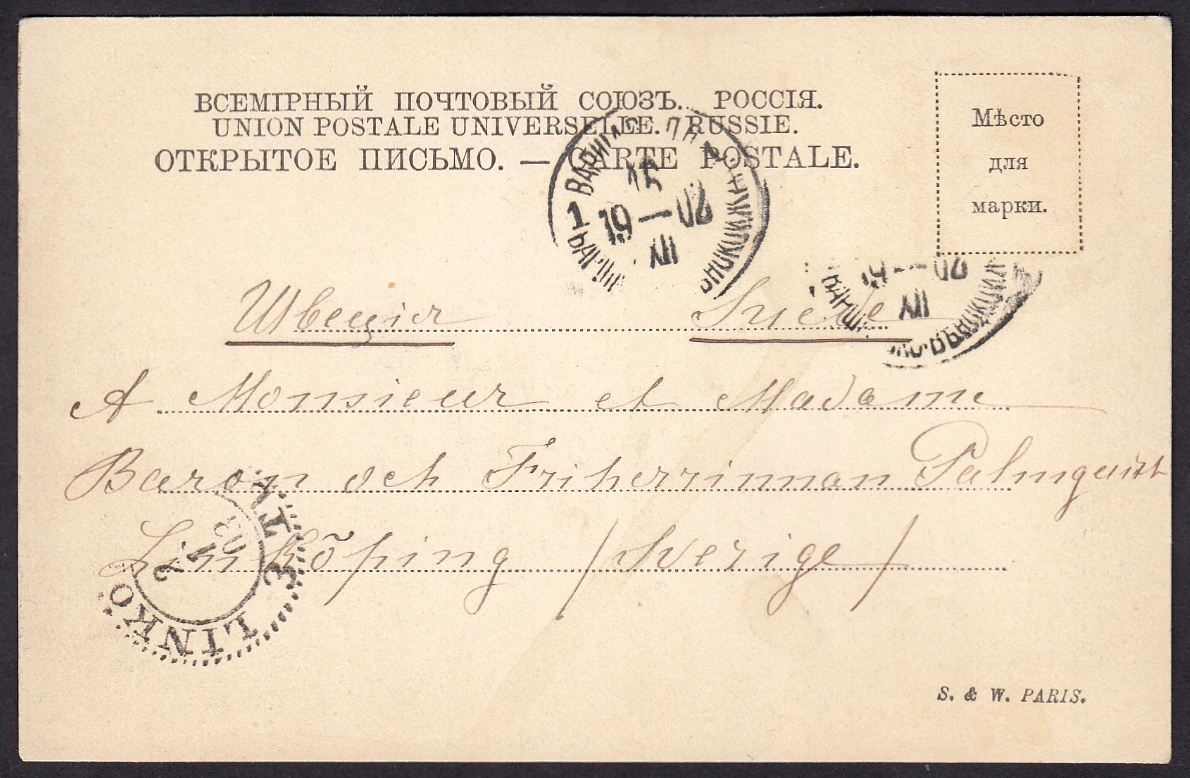 ВСЕМІРНЫЙ ПОЧТОВЫЙ СОЮЗЪ. РОССІЯ.
UNION POSTALE UNIVERSELLE. RUSSIE.
ОТКРЫТОЕ ПИСЬМО. — CARTE POSTALE.
Мѣсто
для
марки.
1
15
19—02
XII
19—02
XII
Швеція Suede
A Monsieur et Madame
Baron och Friherrinnan Palmquist
Linköping /Sverige/
LINKÖ
3
2
1
03
S. & W. PARIS.